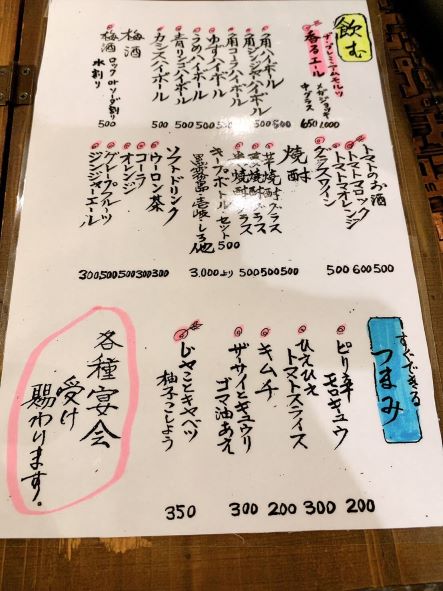 飲む
ザ・プレミアムモルツ
香るエール
メガジョッキ 1,000
中グラス 650
角ハイボール 500
角ジンジャハイボール 500
角コーラハイボール 500
ゆずハイボール 500
うめハイボール 500
青リンゴハイボール 500
カシスハイボール 500
梅酒
梅酒 ロック or ソーダ割り
水割り 500
トマトのお酒
トマトマロック 500
トマトマオレンジ 600
グラスワイン 500
焼酎
芋焼酎グラス 500
麦焼酎グラス 500
米焼酎グラス 500
キープボトルセット 500
黒霧島・壱岐・しろ他 3,000より
ソフトドリンク
ウーロン茶 300
コーラ 300
オレンジ 500
グレープフルーツ 500
ジンジャーエール 300
すぐできる
つまみ
ピリ辛
モロキュウ 200
ひえひえ
トマトスライス 300
キムチ 200
ザーサイとキュウリ
ゴマ油あえ 300
じゃことキャベツ
柚子こしょう 350
各種宴会
受け
賜わります。